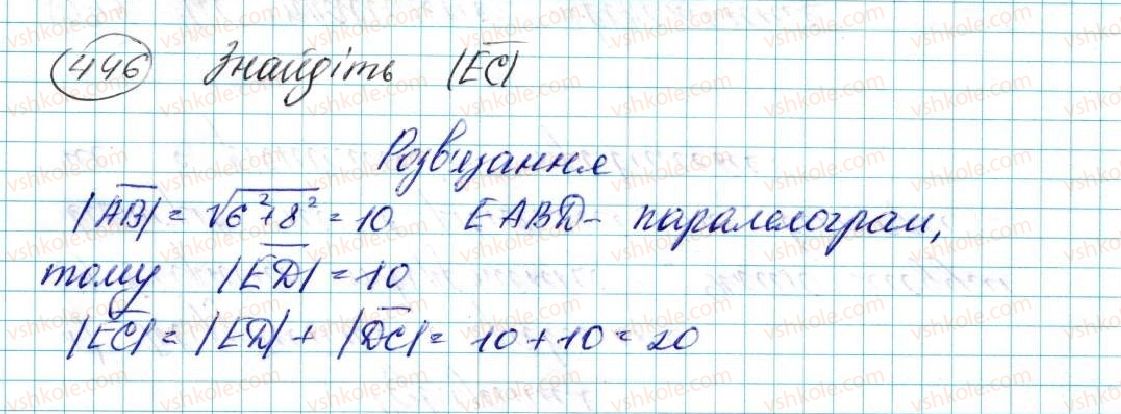 446 Знайдіть |EC|
Розв'язання
|AB| = √6²+8² = 10 EABD - паралелограм,
тому |ED| = 10
|EC| = |ED| + |DC| = 10 + 10 = 20